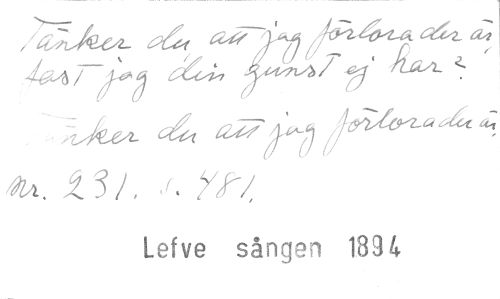 Tänker du att jag förlorader är,
fast jag din gunst ej har?
Tänker du att jag förlorader är,
nr. 231. s. 481.
Lefve sången 1894